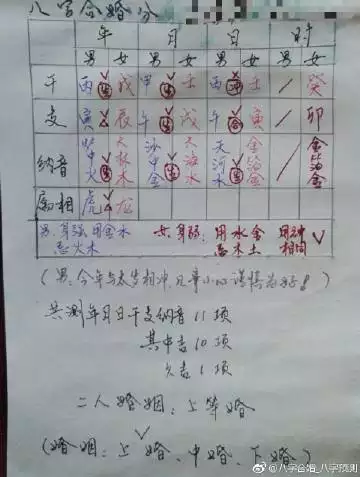 八字合婚分
年 月 日 时
男 女 男 女 男 女 男 女
干 丙 生 戊 甲 生 壬 丙 冲 壬 / 癸
支 寅 辰 午 合 戌 午 合 寅 / 卯
纳音 炉中火 生 大林木 沙中金 生 大海水 天河水 生 金箔金 / 金箔金
属相 虎 龙
男:身强 用金水 忌火木 女:身弱:用水金 忌木土 用神相同 ✓
(男:今年与太岁相冲,凡事小心谨慎为好!)
共测年月日干支纳音11项
其中吉10项
欠吉1项
二人婚姻:上等婚
(婚姻:上✓婚、中婚、下婚)
@八字合婚_八字预测